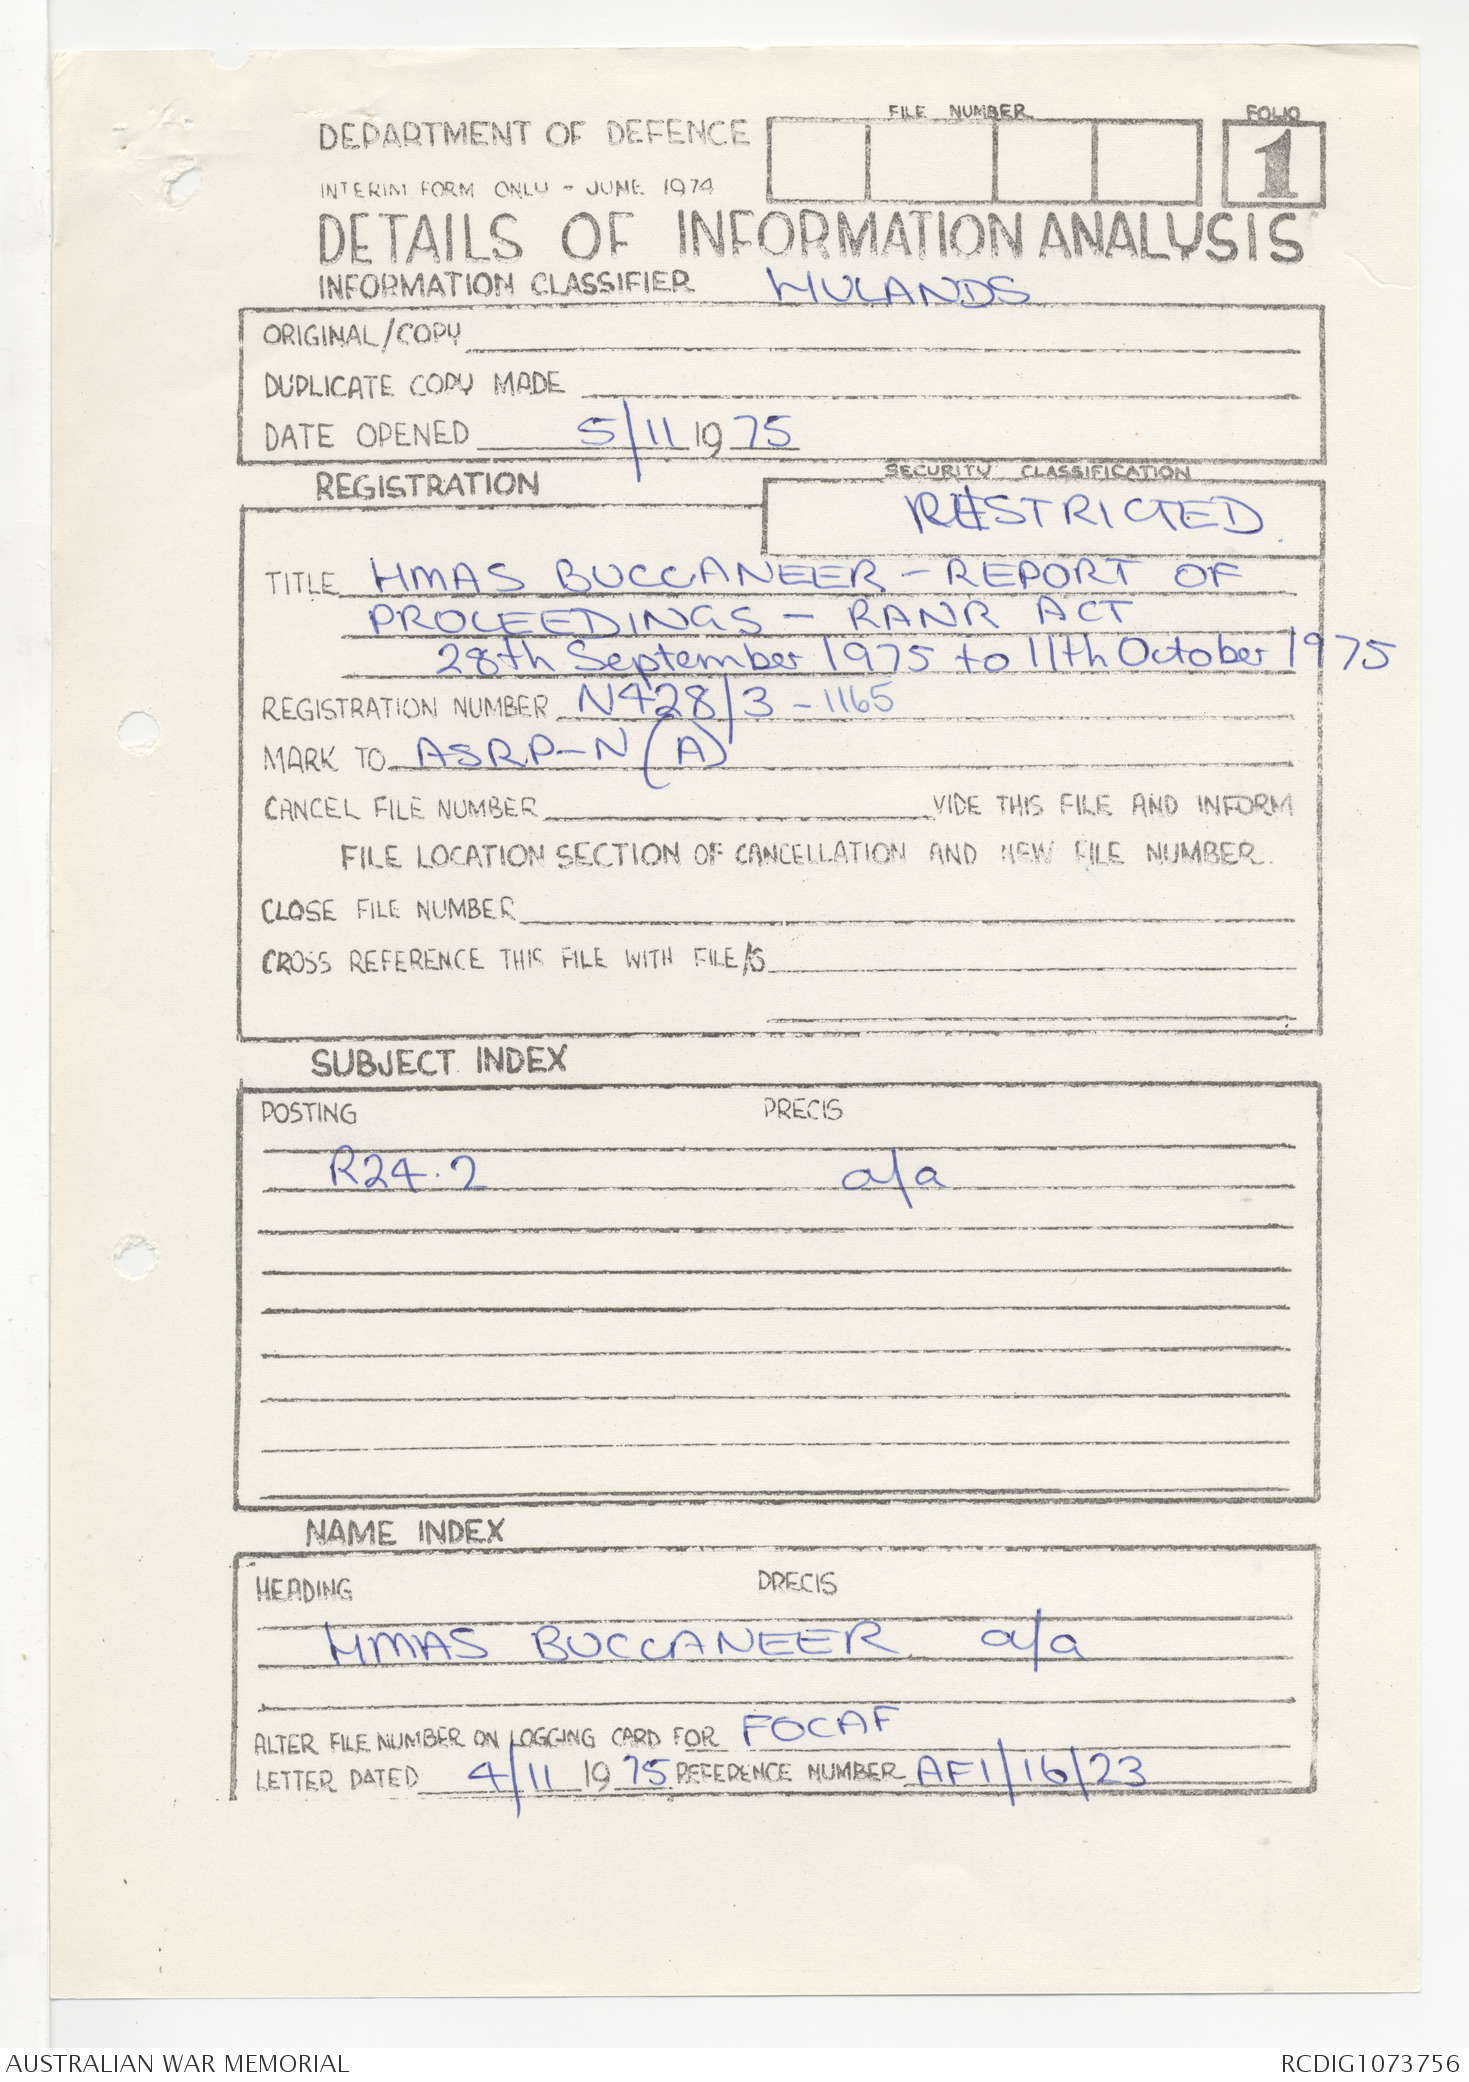 FILE NUMBER FOLIO
DEPARTMENT OF DEFENCE 1
INTERIM FORM ONLY - JUNE 1974
DETAILS OF INFORMATION ANALYSIS
INFORMATION CLASSIFIER HULANDS
ORIGINAL/COPY
DUPLICATE COPY MADE
DATE OPENED 5/11 19 75
REGISTRATION
SECURITY CLASSIFICATION
RESTRICTED.
TITLE HMAS BUCCANEER - REPORT OF
PROCEEDINGS - RANR ACT
28th September 1975 to 11th October 1975
REGISTRATION NUMBER N428/3 - 1165
MARK TO ASRP-N (A)
CANCEL FILE NUMBER VIDE THIS FILE AND INFORM
FILE LOCATION SECTION OF CANCELLATION AND NEW FILE NUMBER.
CLOSE FILE NUMBER
CROSS REFERENCE THIS FILE WITH FILE/S
SUBJECT INDEX
POSTING PRECIS
R24.2 a/a
NAME INDEX
HEADING PRECIS
HMAS BUCCANEER a/a
ALTER FILE NUMBER ON LOGGING CARD FOR FOCAF
LETTER DATED 4/11 19 75 REFERENCE NUMBER AF1/16/23
AUSTRALIAN WAR MEMORIAL RCDIG1073756